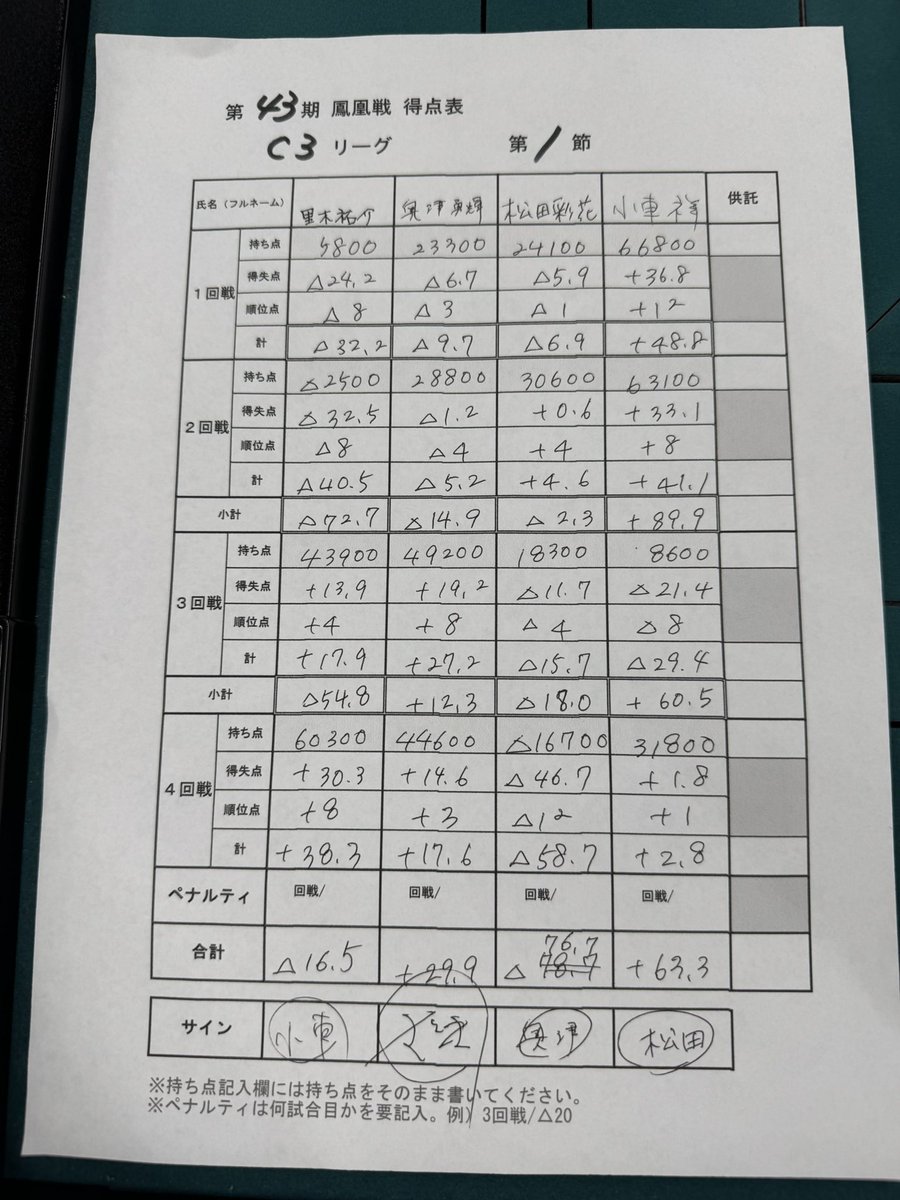 第43期 鳳凰戦 得点表
C3 リーグ 第1節
氏名（フルネーム） 黒木祐介 奥津勇輝 松田彩花 小車祥 供託
1回戦
持ち点 5800 23300 24100 66800
得失点 △24.2 △6.7 △5.9 +36.8
順位点 △8 △3 △1 +12
計 △32.2 △9.7 △6.9 +48.8
2回戦
持ち点 △2500 28800 30600 63100
得失点 △32.5 △1.2 +0.6 +33.1
順位点 △8 △4 +4 +8
計 △40.5 △5.2 +4.6 +41.1
小計 △72.7 △14.9 △2.3 +89.9
3回戦
持ち点 43900 49200 18300 8600
得失点 +13.9 +19.2 △11.7 △21.4
順位点 +4 +8 △4 △8
計 +17.9 +27.2 △15.7 △29.4
小計 △54.8 +12.3 △18.0 +60.5
4回戦
持ち点 60300 44600 △16700 31800
得失点 +30.3 +14.6 △46.7 +1.8
順位点 +8 +3 △12 +1
計 +38.3 +17.6 △58.7 +2.8
ペナルティ 回戦/ 回戦/ 回戦/ 回戦/
合計 △16.5 +29.9 △76.7 78.7 +63.3
サイン 小車 奥津 松田
※持ち点記入欄には持ち点をそのまま書いてください。
※ペナルティは何試合目かを要記入。例）3回戦/△20